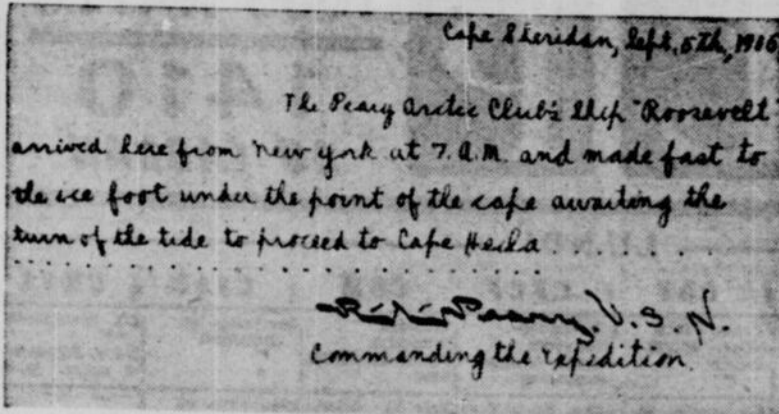 Cape Sheridan, Sept. 5th, 1905
The Peary Arctic Club's Ship "Roosevelt
arrived here from New York at 7. A.M. and made fast to
the ice foot under the point of the cape awaiting the
turn of the tide to proceed to Cape Hecla . . . . . .
. . . . . . . . . . . . . . . . . . . . . . . .
R. E. Peary. U. S. N.
Commanding the Expedition.